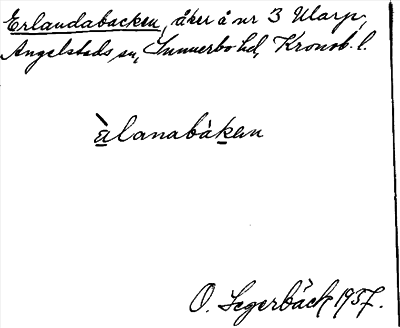 Erlandabacken, åker å nr 3 Ularp,
Angelstads sn, Sunnerbo hd, Kronob. l.
àlanabàkan
O. Segerbäck 1937.